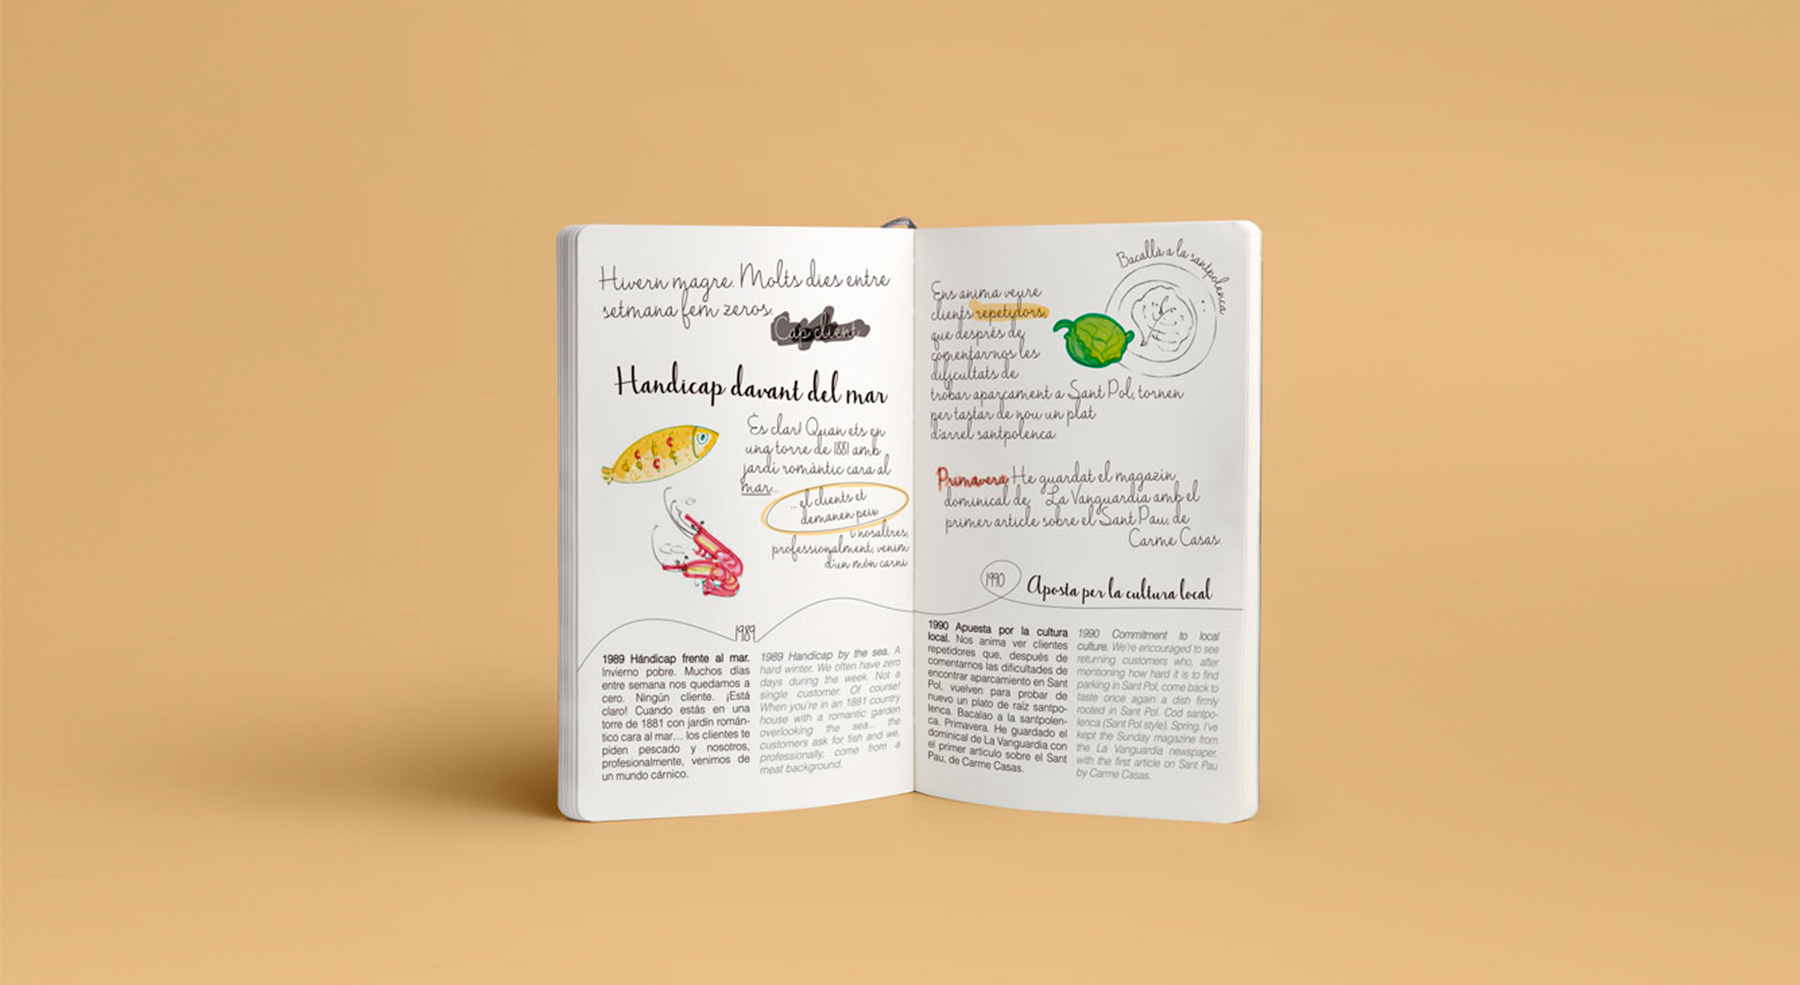 Hivern magre. Molts dies entre
setmana fem zeros.
Cap client.
Handicap davant del mar
És clar! Quan ets en
una torre de 1881 amb
jardí romàntic cara al
mar...
... el clients et
demanen peix
i nosaltres,
professionalment, venim
d'un món carni.
1989
1989 Hándicap frente al mar.
Invierno pobre. Muchos días
entre semana nos quedamos a
cero. Ningún cliente. ¡Está
claro! Cuando estás en una
torre de 1881 con jardín román-
tico cara al mar... los clientes te
piden pescado y nosotros,
profesionalmente, venimos de
un mundo cárnico.
1989 Handicap by the sea. A
hard winter. We often have zero
days during the week. Not a
single customer. Of course!
When you're in an 1881 country
house with a romantic garden
overlooking the sea... the
customers ask for fish and we,
professionally, come from a
meat background.
Bacallà a la santpolenca
Ens anima veure
clients repetidors,
que després de
comentar-nos les
dificultats de
trobar aparcament a Sant Pol, tornen
per tastar de nou un plat
d'arrel santpolenca.
Primavera. He guardat el magazín
dominical de La Vanguardia amb el
primer article sobre el Sant Pau, de
Carme Casas.
1990 Aposta per la cultura local
1990 Apuesta por la cultura
local. Nos anima ver clientes
repetidores que, después de
comentarnos las dificultades de
encontrar aparcamiento en Sant
Pol, vuelven para probar de
nuevo un plato de raíz santpo-
lenca. Bacalao a la santpolen-
ca. Primavera. He guardado el
dominical de La Vanguardia con
el primer artículo sobre el Sant
Pau, de Carme Casas.
1990 Commitment to local
culture. We're encouraged to see
returning customers who, after
mentioning how hard it is to find
parking in Sant Pol, come back to
taste once again a dish firmly
rooted in Sant Pol. Cod santpo-
lenca (Sant Pol style). Spring. I've
kept the Sunday magazine from
the La Vanguardia newspaper,
with the first article on Sant Pau
by Carme Casas.